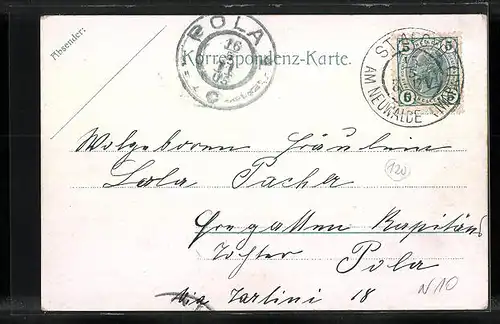 Absender:
POLA
16
Korrespondenz-Karte.
ST. ALO
AM NEUWALDE
5 5
6 6
Wolgeboren Fräulein
Lola Pacher
Fregatten Kapitäns
Tochter Pola
Via Tarlini 18
120
N 10